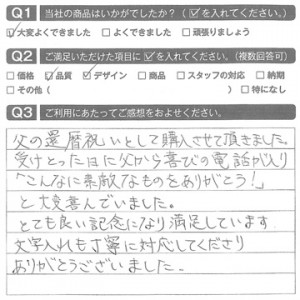 Q1 当社の商品はいかがでしたか？（☑を入れてください。）
☑大変よくできました □よくできました □頑張りましょう
Q2 ご満足いただけた項目に☑を入れてください。（複数回答可）
□価格 ☑品質 ☑デザイン □商品 □スタッフの対応 □納期
□その他（ ） □特になし
Q3 ご利用にあたってご感想をおよせください。
父の還暦祝いとして購入させて頂きました。
受けとった日に父から喜びの電話が入り
「こんなに素敵なものをありがとう！」
と大変喜んでいました。
とても良い記念になり満足しています
文字入れも丁寧に対応してくださり
ありがとうございました。